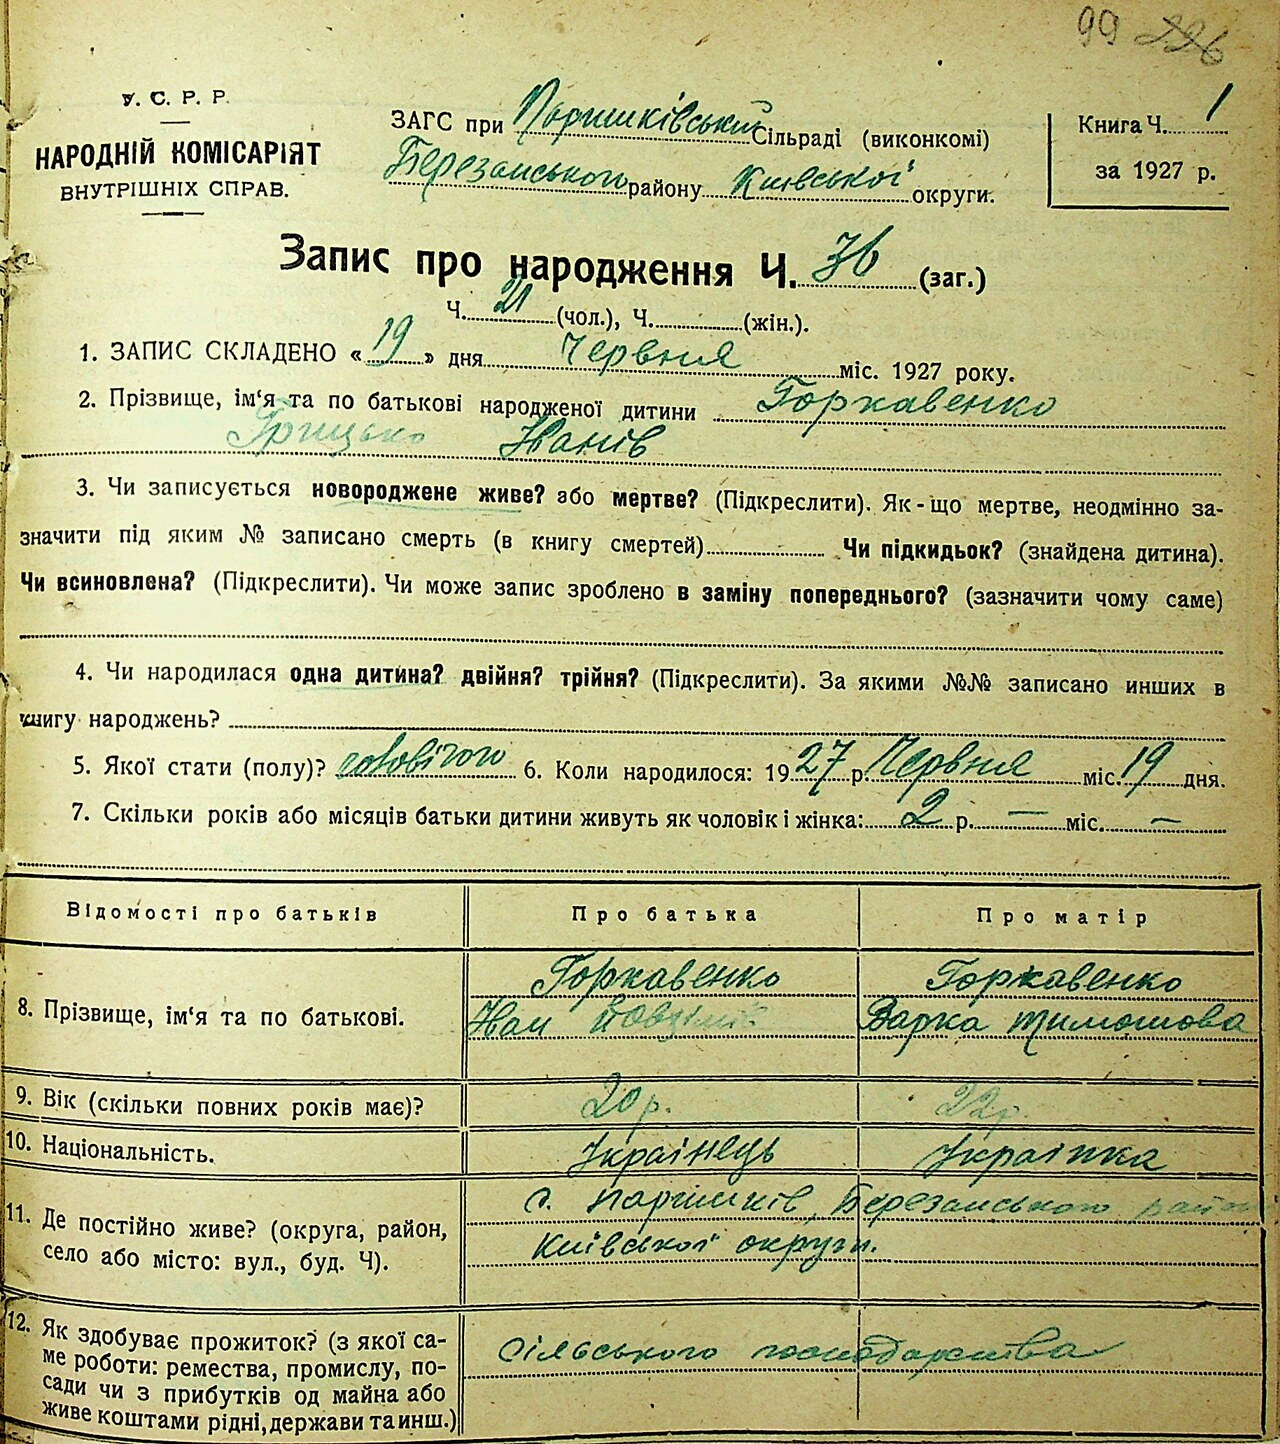 99 226
У. С. Р. Р.
НАРОДНІЙ КОМІСАРІЯТ
ВНУТРІШНІХ СПРАВ.
ЗАГС при Паришківській Сільраді (виконкомі)
Березанського району Київської округи.
Книга Ч. 1
за 1927 р.
Запис про народження Ч. 36 (заг.)
Ч. 21 (чол.), Ч. (жін.).
1. ЗАПИС СКЛАДЕНО « 19 » дня Червня міс. 1927 року.
2. Прізвище, ім‘я та по батькові народженої дитини Горкавенко
Грицько Іванів
3. Чи записується новороджене живе? або мертве? (Підкреслити). Як-що мертве, неодмінно за-
значити під яким № записано смерть (в книгу смертей) Чи підкидьок? (знайдена дитина).
Чи всиновлена? (Підкреслити). Чи може запис зроблено в заміну попереднього? (зазначити чому саме)
4. Чи народилася одна дитина? двійня? трійня? (Підкреслити). За якими №№ записано инших в
книгу народжень?
5. Якої стати (полу)? чоловічого 6. Коли народилося: 1927 р. Червня міс. 19 дня.
7. Скільки років або місяців батьки дитини живуть як чоловік і жінка: 2 р. — міс. —
Відомості про батьків Про батька Про матір
8. Прізвище, ім‘я та по батькові.
Горкавенко Горкавенко
Іван Варка Тимошова
9. Вік (скільки повних років має)? 20 р. 22 р.
10. Національність. Українець Українка
11. Де постійно живе? (округа, район,
село або місто: вул., буд. Ч).
с. Паришків, Березанського району
Київської округи.
12. Як здобуває прожиток? (з якої са-
ме роботи: ремества, промислу, по-
сади чи з прибутків од майна або
живе коштами рідні, держави та инш.)
сільського господарства